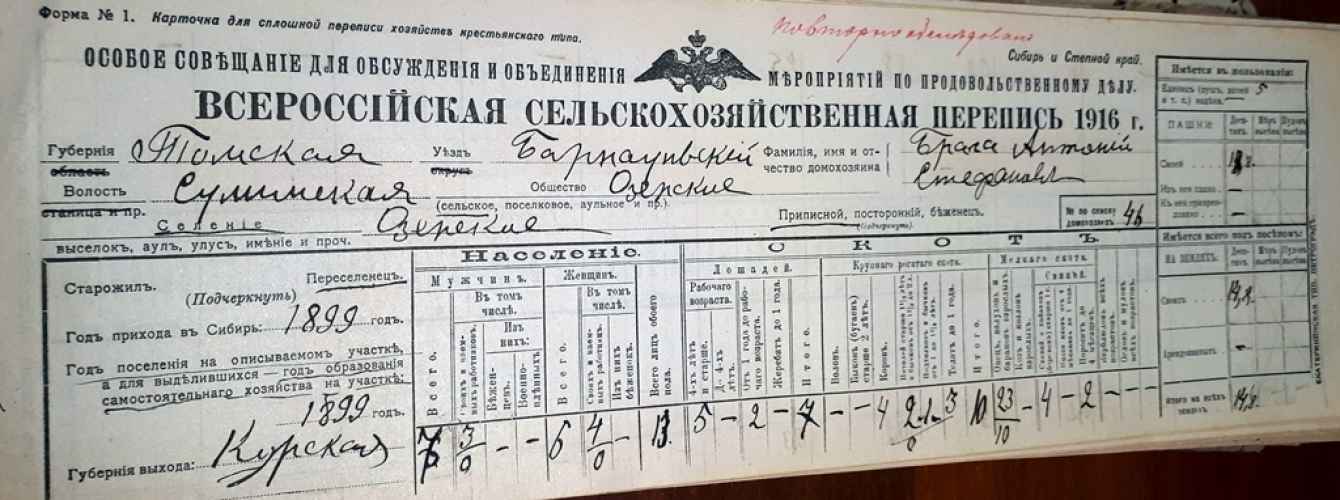 Форма № 1. Карточка для сплошной переписи хозяйствъ крестьянскаго типа.
повторно обследовано
Сибирь и Степной край.
ОСОБОЕ СОВѢЩАНІЕ ДЛЯ ОБСУЖДЕНІЯ И ОБЪЕДИНЕНІЯ МѢРОПРІЯТІЙ ПО ПРОДОВОЛЬСТВЕННОМУ ДѢЛУ.
ВСЕРОССІЙСКАЯ СЕЛЬСКОХОЗЯЙСТВЕННАЯ ПЕРЕПИСЬ 1916 г.
Губернія Томская Уѣздъ Барнаульскій Фамилія, имя и от-
область округъ чество домохозяина
Брага Антоній
Стефановъ
Волость Сулимская Общество Озерские
станица и пр. (сельское, поселковое, аульное и пр.)
Приписной, посторонній, бѣженецъ.
(подчеркнуть)
№ по списку домохозяевъ 46
Селеніе Озерские
выселокъ, аулъ, улусъ, имѣніе и проч.
Старожилъ. Переселенецъ.
(Подчеркнуть)
Годъ прихода въ Сибирь: 1899 годъ.
Годъ поселенія на описываемомъ участкѣ,
а для выдѣлившихся — годъ образованія
самостоятельнаго хозяйства на участкѣ:
1899 годъ.
Губернія выхода: Курская
Населеніе.
Мужчинъ. Женщинъ.
Всего.
Въ томъ числѣ.
Изъ нихъ:
Бѣженцевъ.
Военноплѣнныхъ
Всего.
Въ томъ числѣ.
Изъ нихъ бѣженокъ.
Всего лицъ обоего пола.
СКОТЪ.
Лошадей.
Рабочаго возраста.
4-хъ лѣтъ и старше.
До 4-хъ лѣтъ.
Отъ 1 года до рабочаго возраста.
Жеребятъ до 1 года.
Итого.
Крупнаго рогатаго скота.
Воловъ.
Быковъ (бугаевъ) старше 2 лѣтъ.
Коровъ.
Телятъ до 1 года.
Итого.
Мелкаго скота.
Свиней.
7 3/0 - - 6 4/0 - 13. 5 - 2 - 7 - - 4 2 - 1 - 3 10 23/10 - 4 - 2 - - -
Имѣется въ пользованіи:
5
ПАШНИ:
Своей
Имѣется всего подъ посѣвомъ:
НА ЗЕМЛЯХЪ:
Своихъ 14,8.
Арендованныхъ —
Итого на всѣхъ земляхъ 14,8.